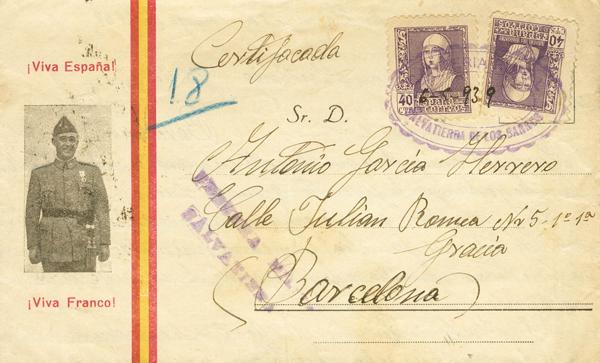 ¡Viva España!
¡Viva Franco!
Certificada
18
Sr. D.
Antonio García Herrero
Calle Julian Romea Nr 5-1º 1ª
Gracia
Barcelona
40
CORREOS
40
CORREOS
939
DE LOS BARROS